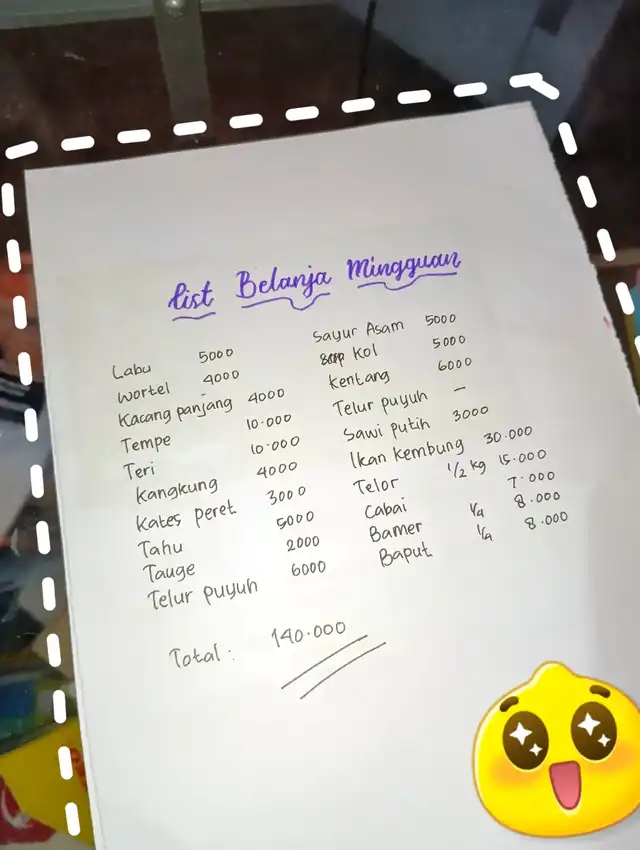 List Belanja Mingguan
Labu 5000
Wortel 4000
Kacang panjang 4000
Tempe 10.000
Teri 10.000
Kangkung 4000
Kates peret 3000
Tahu 5000
Tauge 2000
Telur puyuh 6000
Sayur Asam 5000
Kol 5000
Kentang 6000
Telur puyuh –
Sawi putih 3000
Ikan kembung 30.000
Telor 1/2 kg 15.000
Cabai 7.000
Bamer 1/4 8.000
Baput 1/4 8.000
Total : 140.000